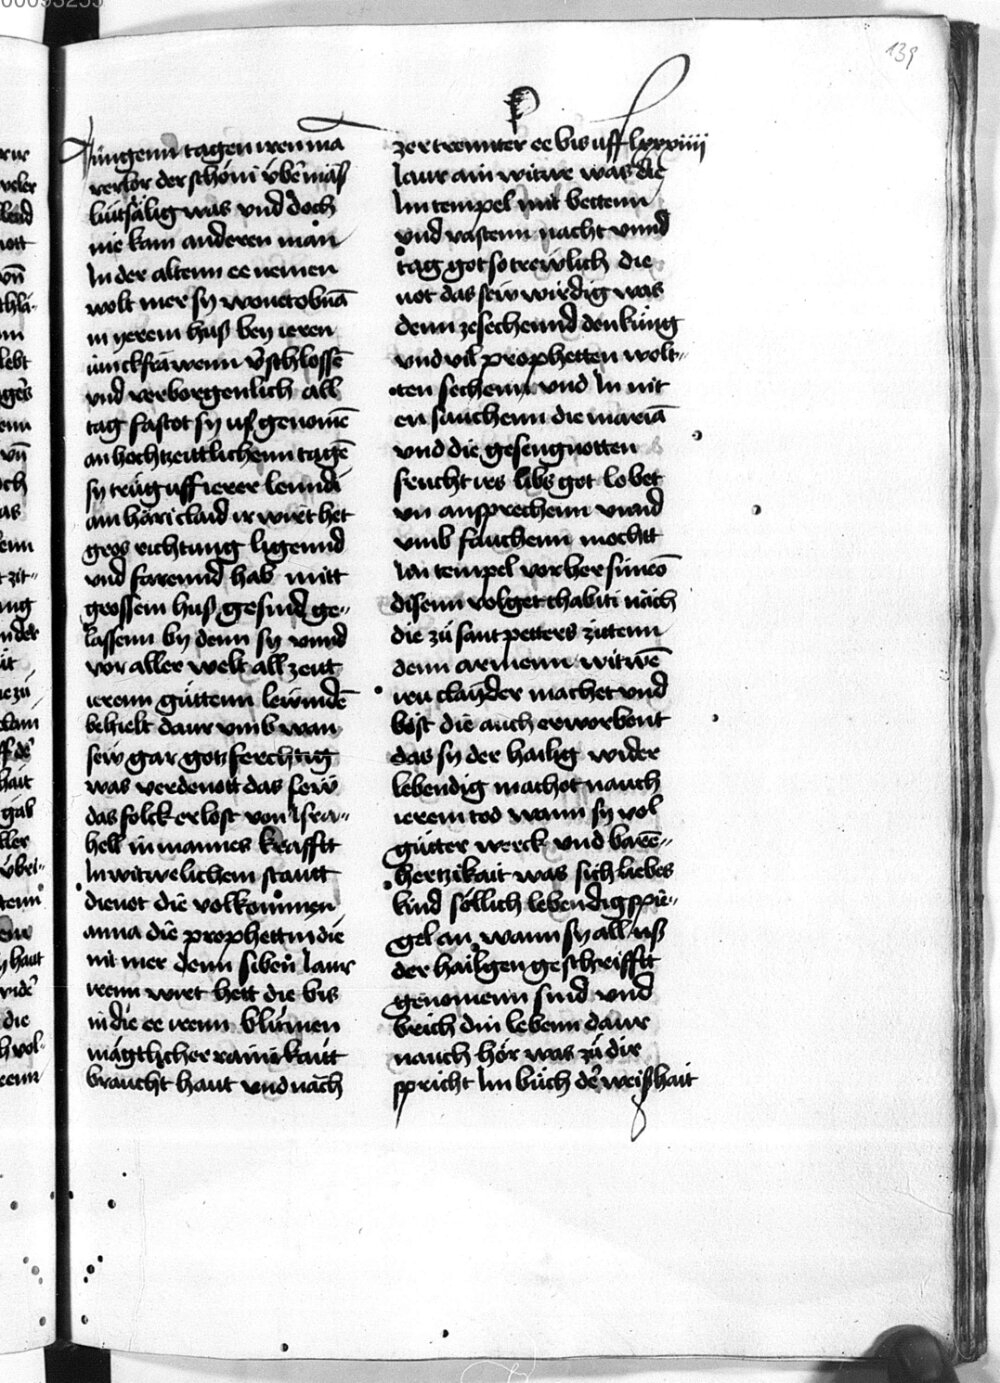 139
P
Jüngenn tagen iren ma
verlor der schöni übermäs
lüttsälig was vnd doch
nie kam anderen man
In der altenn ee nemen
wolt mer sy wonet obnā
in yerem huß bey ieren
iunckfrāwenn v̄schlossē
vnd verborgenlich all
tag fastot sy uß genomē
an hochtzeittlichenn tagē
sy trüg uff ierer lenndi
ain häri claid ir wirt het
gros richtung ligennd
vnd farennd hab mitt
grossem huß gesind ge-
lassenn by denn sy vnnd
vor aller welt all zeitt
ierenn güttenn lewindē
behielt darumb wan
sew gar gotzferchtig
was verdenott das sew
das folck erlost von Isra-
hell in mannes krafftt
In witwelichem stautt
dienot die volkommen
anna die prophettin die
nit mer denn siben Iaur
irenn wirt hett die bis
in die ee irenn blümen
mägtlicher rainikaitt
braucht haut vnd näch
zertrennter ee bis uff lxxxiiii
Iaur ain witwe was die
Im tempel mit bettenn
vnd vastenn nacht vnnd
tag got so trewlich die
not das sew wirdig was
denn ze sechennd den küng
vnd vil prophetten wolt-
ten sechenn vnd In nit
en sauchenn die mariā
vnd die gesengnotten
frucht irs libs got lobet
vn ansprechenn vnnd
vmb fauchenn mochtt
Im tempel vor her simeō
disenn volget thabiti näch
die zü sant petters zittenn
denn armenn witwē
iru claider machet vnd
böst die auch erworbent
das sy der hailig wider
lebendig machot nauch
ierem tod wann sy vol
gütter werck vnd barē-
hertzikait was sich liebes
kind söllich lebendig spie-
gel an wann sy all uß
der hailgen geschrifftt
genomenn sind vnd
brich din lebenn daur
nauch hör was zü dir
spricht Im büch der weißhait